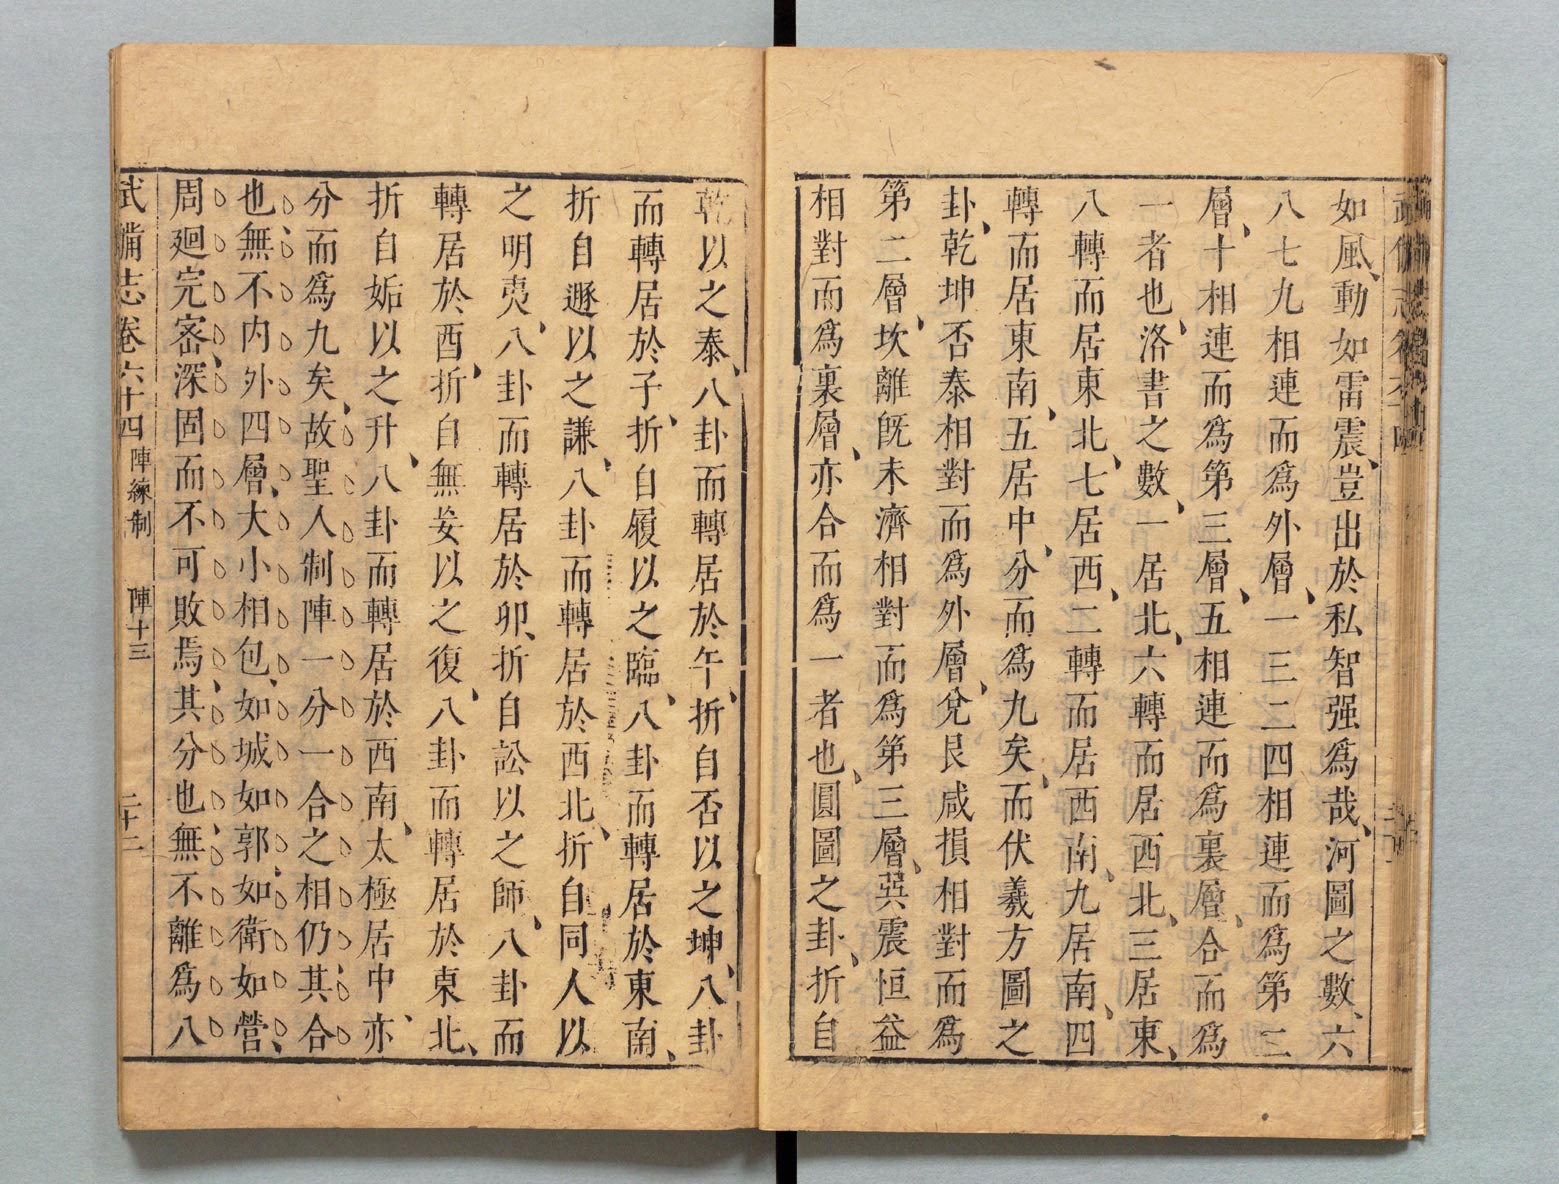 如風、動如雷震、豈出於私智强爲哉、河圖之數、六
八七九相連而爲外層、一三二四相連而爲第二
層、十相連而爲第三層、五相連而爲裏層、合而爲
一者也、洛書之數、一居北、六轉而居西北、三居東、
八轉而居東北、七居西、二轉而居西南、九居南、四
轉而居東南、五居中、分而爲九矣、而伏羲方圖之
卦、乾坤否泰相對而爲外層、兌艮咸損相對而爲
第二層、坎離旣未濟相對而爲第三層、巽震恒益
相對而爲裏層、亦合而爲一者也、圓圖之卦、折自
乾以之泰、八卦而轉居於午、折自否以之坤、八卦
而轉居於子、折自履以之臨、八卦而轉居於東南、
折自遯以之謙、八卦而轉居於西北、折自同人以
之明夷、八卦而轉居於卯、折自訟以之師、八卦而
轉居於酉、折自無妄以之復、八卦而轉居於東北、
折自姤以之升、八卦而轉居於西南、太極居中、亦
分而爲九矣、故聖人制陣一分一合之相仍其合
也、無不内外四層、大小相包、如城如郭、如衛如營、
周廻完宻、深固而不可敗焉、其分也無不離爲八
武備志卷六十四 陣練制 陣十三 二十二